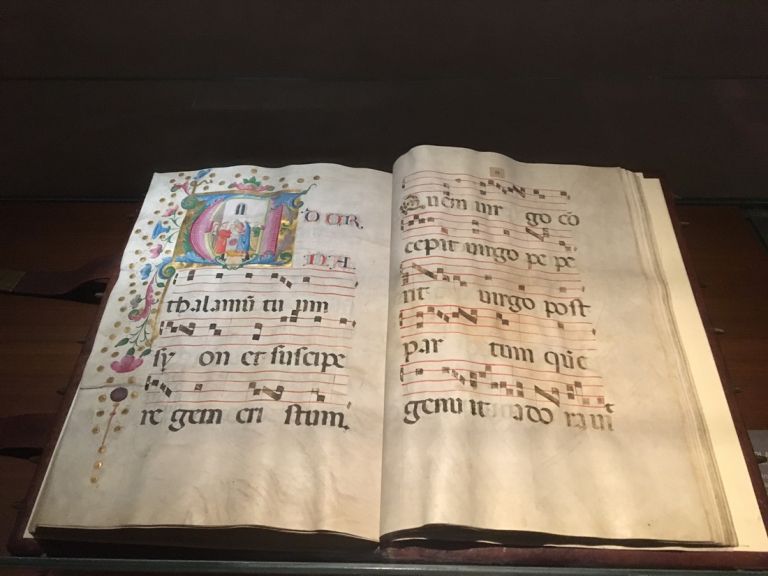 A D OR
NA
thalamū tu um
sy on et suscipe
re gem cri stum.
Quem uir go co
cepit uirgo pe pe
rit uirgo post
par tum quē
genu it ado